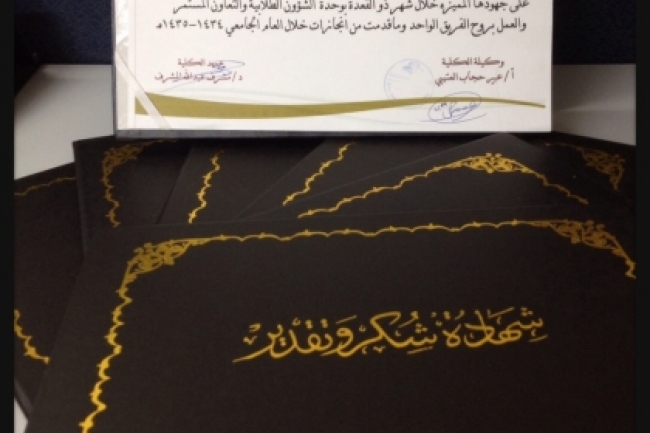 على جهودها المميزه خلال شهر ذو القعدة بوحدة الشؤون الطلابية والتعاون المستمر
والعمل بروح الفريق الواحد وماقدمت من أنجازات خلال العام الجامعي ١٤٣٤-١٤٣٥هـ
وكيلة الكلية
عميد الكلية
أ/ عبير حجاب العتيبي
د/ مشرف عبدالله المشرف
شهادة شكر وتقدير